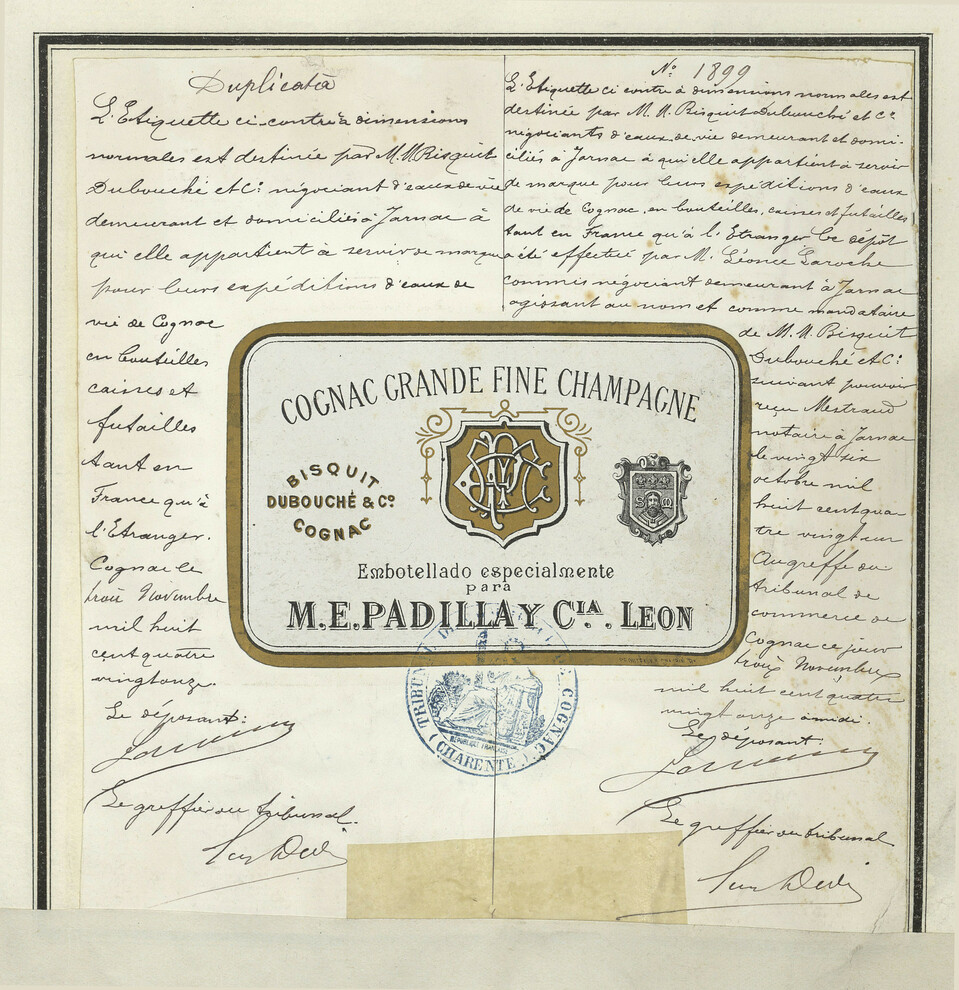 Duplicata
L'Etiquette ci-contre à dimensions
normales est destinée par M.M Bisquit
Dubouché et Cie négociant d'eaux de vie
demeurant et domiciliés à Jarnac à
qui elle appartient à servir de marque
pour leurs expéditions d'eaux de
vie de Cognac
en bouteilles
caisses et
futailles
tant en
France qu'à
l'Etranger.
Cognac le
trois Novembre
mil huit
cent quatre
vingt onze.
Le déposant:
Le greffier du tribunal.
No 1899
L'Etiquette ci contre à dimensions normales est
destinée par M.M. Bisquit Dubouché et Cie
négociants d'eaux de vie demeurant et domi-
ciliés à Jarnac à qui elle appartient à servir
de marque pour leurs expéditions d'eaux
de vie de Cognac, en bouteilles, caisses et futailles
tant en France qu'à l'Etranger Ce dépôt
a été effectué par M. Léonce Laroche
commis négociant demeurant à Jarnac
agissant au nom et comme mandataire
de M.M Bisquit
Dubouché et Cie
suivant pouvoir
reçu Mestraud
notaire à Jarnac
le vingt six
octobre mil
huit cent qua-
tre vingt onze
Au greffe du
tribunal de
commerce de
Cognac ce jour
trois Novembre
mil huit cent quatre
vingt onze à midi.
Le déposant:
Le greffier du tribunal
COGNAC GRANDE FINE CHAMPAGNE
BISQUIT
DUBOUCHÉ & Co
COGNAC
Embotellado especialmente
para
M.E.PADILLA Y CIA. LEON
TRIBUNAL COGNAC
REPUBLIQUE FRANÇAISE
(CHARENTE)